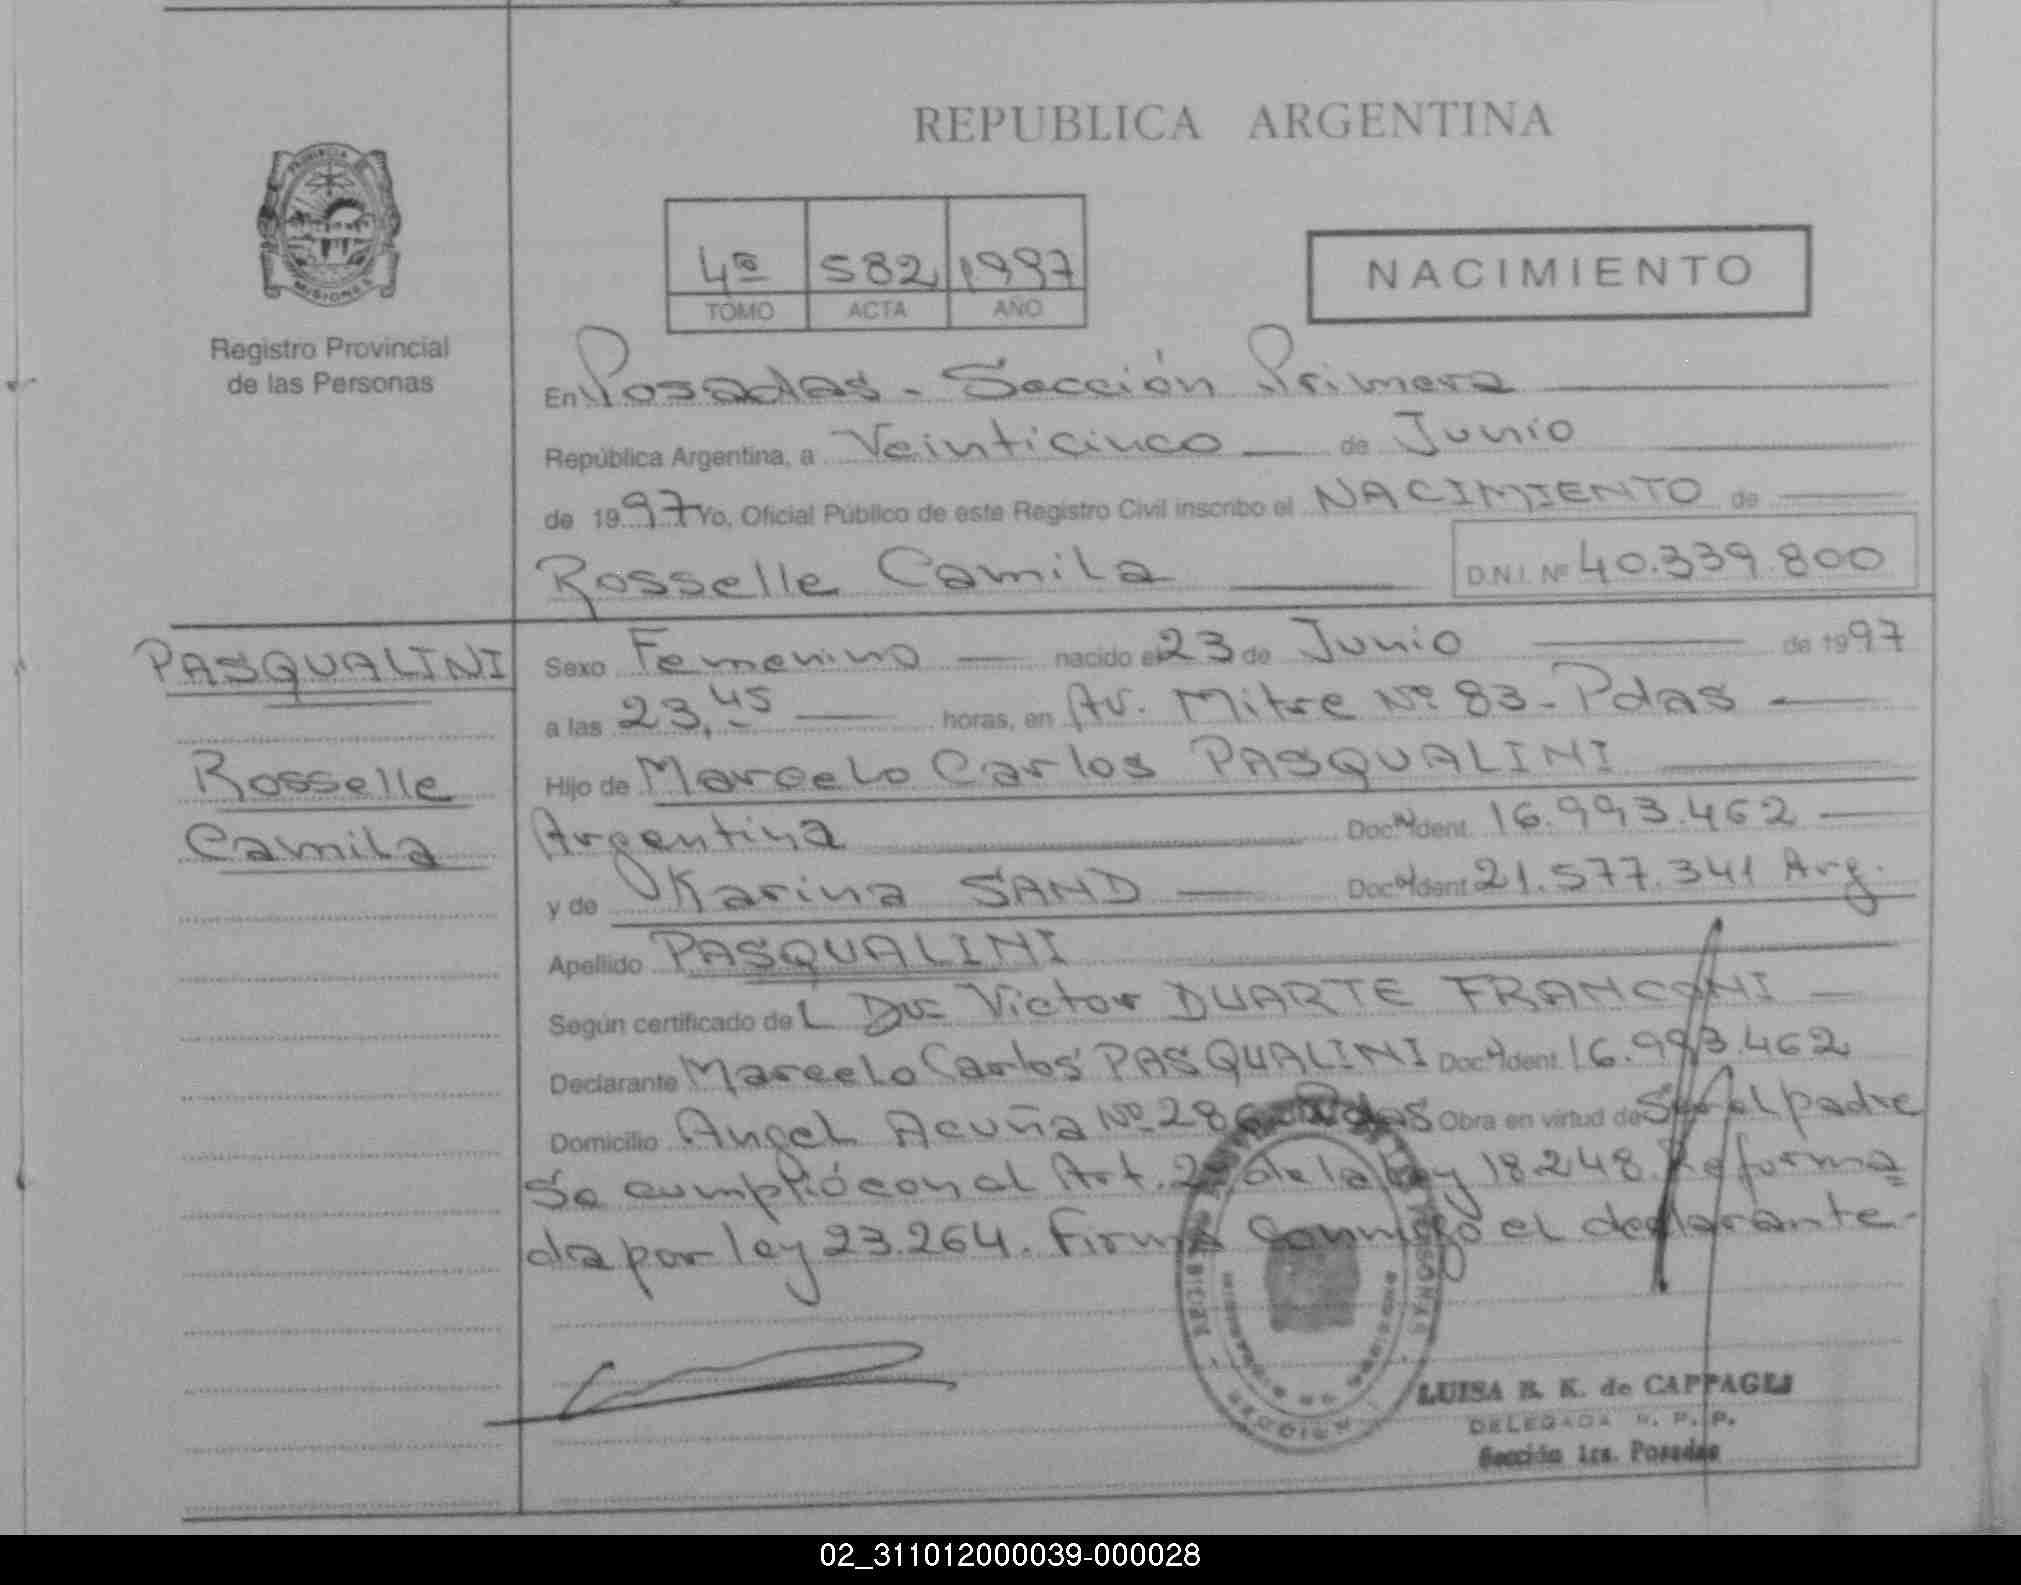 REPUBLICA ARGENTINA
PROVINCIA
MISIONES
Registro Provincial
de las Personas
4º 582 1997
TOMO ACTA AÑO
NACIMIENTO
En Posadas - Sección Primera
República Argentina, a Veinticinco de Junio
de 1997 Yo, Oficial Público de este Registro Civil inscribo el NACIMIENTO de
Rosselle Camila D.N.I. Nº 40.339.800
PASQUALINI
Rosselle
Camila
Sexo Femenino nacido el 23 de Junio de 1997
a las 23,45 horas, en Av. Mitre Nº 83 - Pdas
Hijo de Marcelo Carlos PASQUALINI
Argentina Doc. Ident. 16.993.462
y de Karina SAND Doc. Ident. 21.577.341 Arg.
Apellido PASQUALINI
Según certificado del Dr. Victor DUARTE FRANCONI
Declarante Marcelo Carlos PASQUALINI Doc. Ident. 16.993.462
Domicilio Angel Acuña Nº 286 Pdas Obra en virtud de Ser el padre
Se cumplió con el Art. 2º de la ley 18.248. Reforma=
da por ley 23.264. Firma conmigo el declarante-
LUISA B. K. de CAPPAGLI
DELEGADA R. P. P.
Sección 1ra. Posadas
02_311012000039-000028